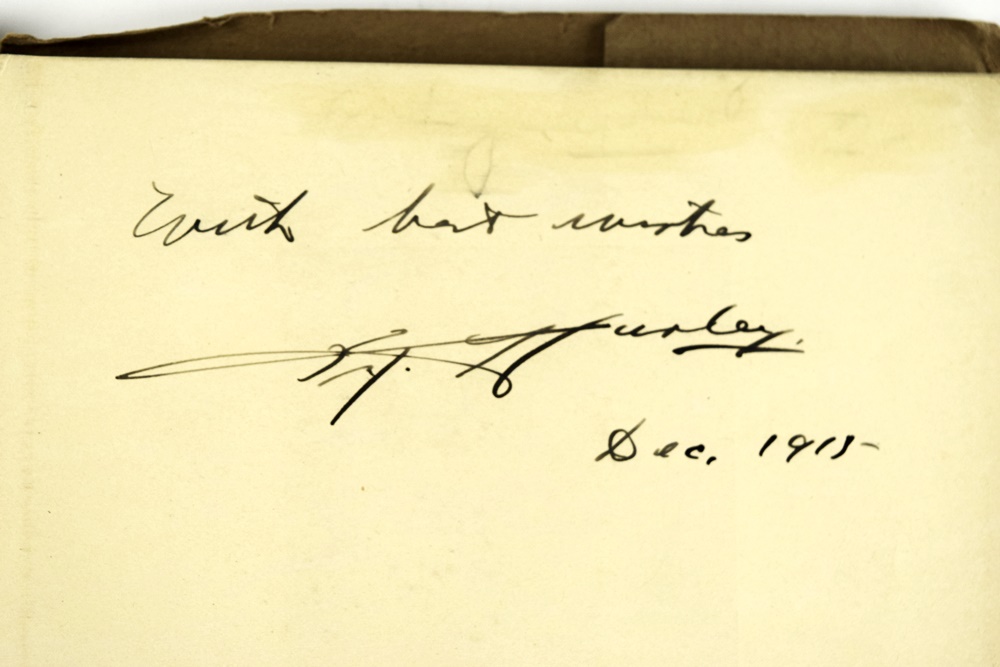 With best wishes
Hurley.
Dec. 1915